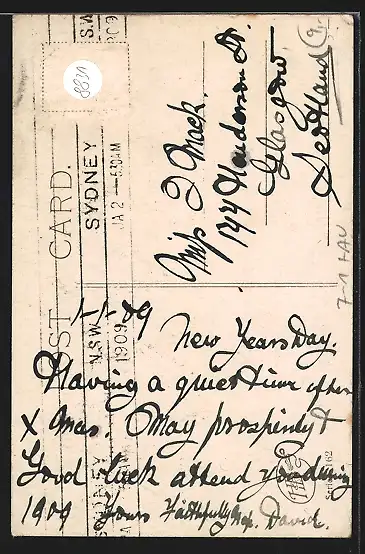 POST CARD.
SYDNEY
JA 2 - 5 30 AM
N.S.W.
1909
8830
Miss D Mack.
144 Henderson St.
Glasgow
Scotland
1-1-09
New Years Day.
Having a quiet time after
X mas. May prosperity &
Good luck attend you during
1909 Yours Faithfully David.